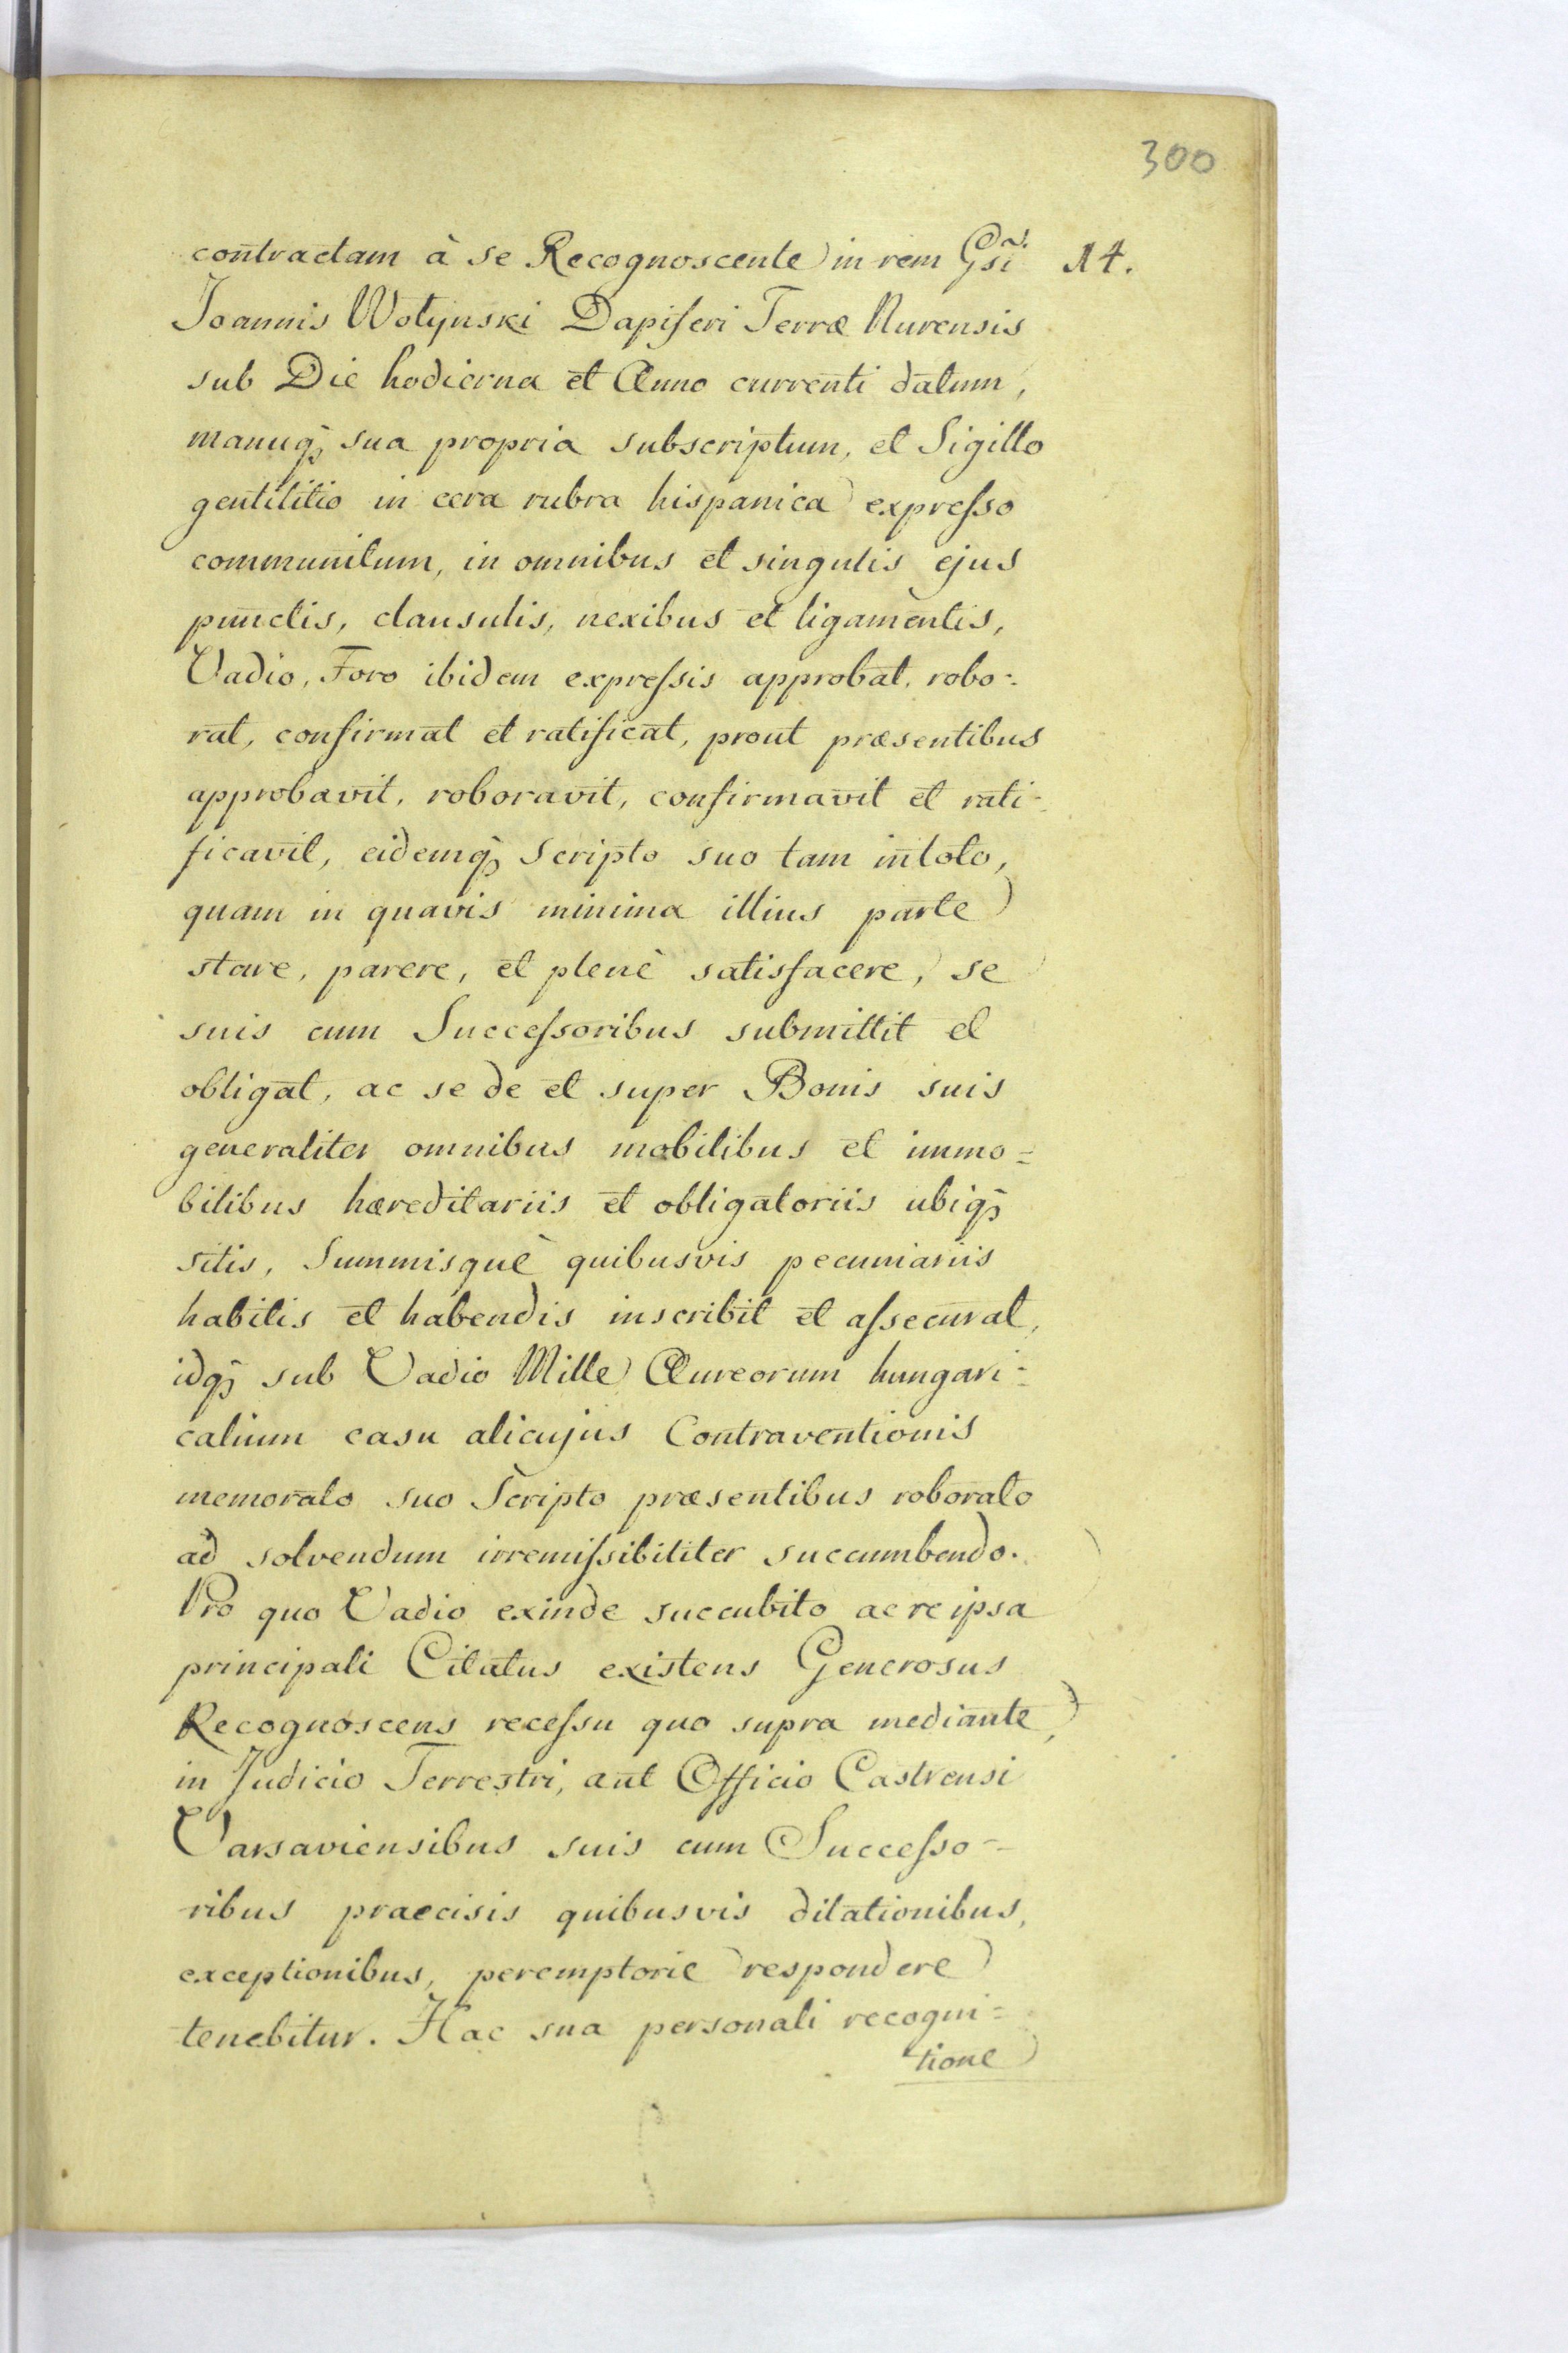 300
contractam à se Recognoscente in rem Gsi 14.
Joannis Wołynski Dapiferi Terræ Nurensis
sub Die hodierna et Anno currenti datum,
manuq̀ꝫ sua propria subscriptum, et Sigillo
gentilitio in cera rubra hispanica expreſso
communitum, in omnibus et singulis ejus
punctis, clausulis, nexibus et ligamentis,
Vadio, Foro ibidem expreſsis approbat, robo-
rat, confirmat et ratificat, prout præsentibus
approbavit, roboravit, confirmavit et rati-
ficavit, eidemq̀ꝫ Scripto suo tam intoto,
quam in quavis minima illius parte
stare, parere, et plenè satisfacere, se
suis cum Succeſsoribus submittit et
obligat, ac se de et super Bonis suis
generaliter omnibus mobilibus et immo=
bilibus hæreditariis et obligatoriis ubiq̀ꝫ
sitis, Summisquè quibusvis pecuniariis
habitis et habendis inscribit et aſsecurat,
idq̀ꝫ sub Vadio Mille Aureorum hungari=
calium casu alicujus Contraventionis
memorato suo Scripto præsentibus roborato
ad solvendum irremiſsibiliter succumbendo.
Pro quo Vadio exinde succubito ac re ipsa
principali Citatus existens Generosus
Recognoscens receſsu quo supra mediante,
in Judicio Terrestri, aut Officio Castrensi
Varsaviensibus suis cum Succeſso-
ribus praecisis quibusvis dilationibus,
exceptionibus, peremptorie respondere
tenebitur. Hac sua personali recogni=
tione